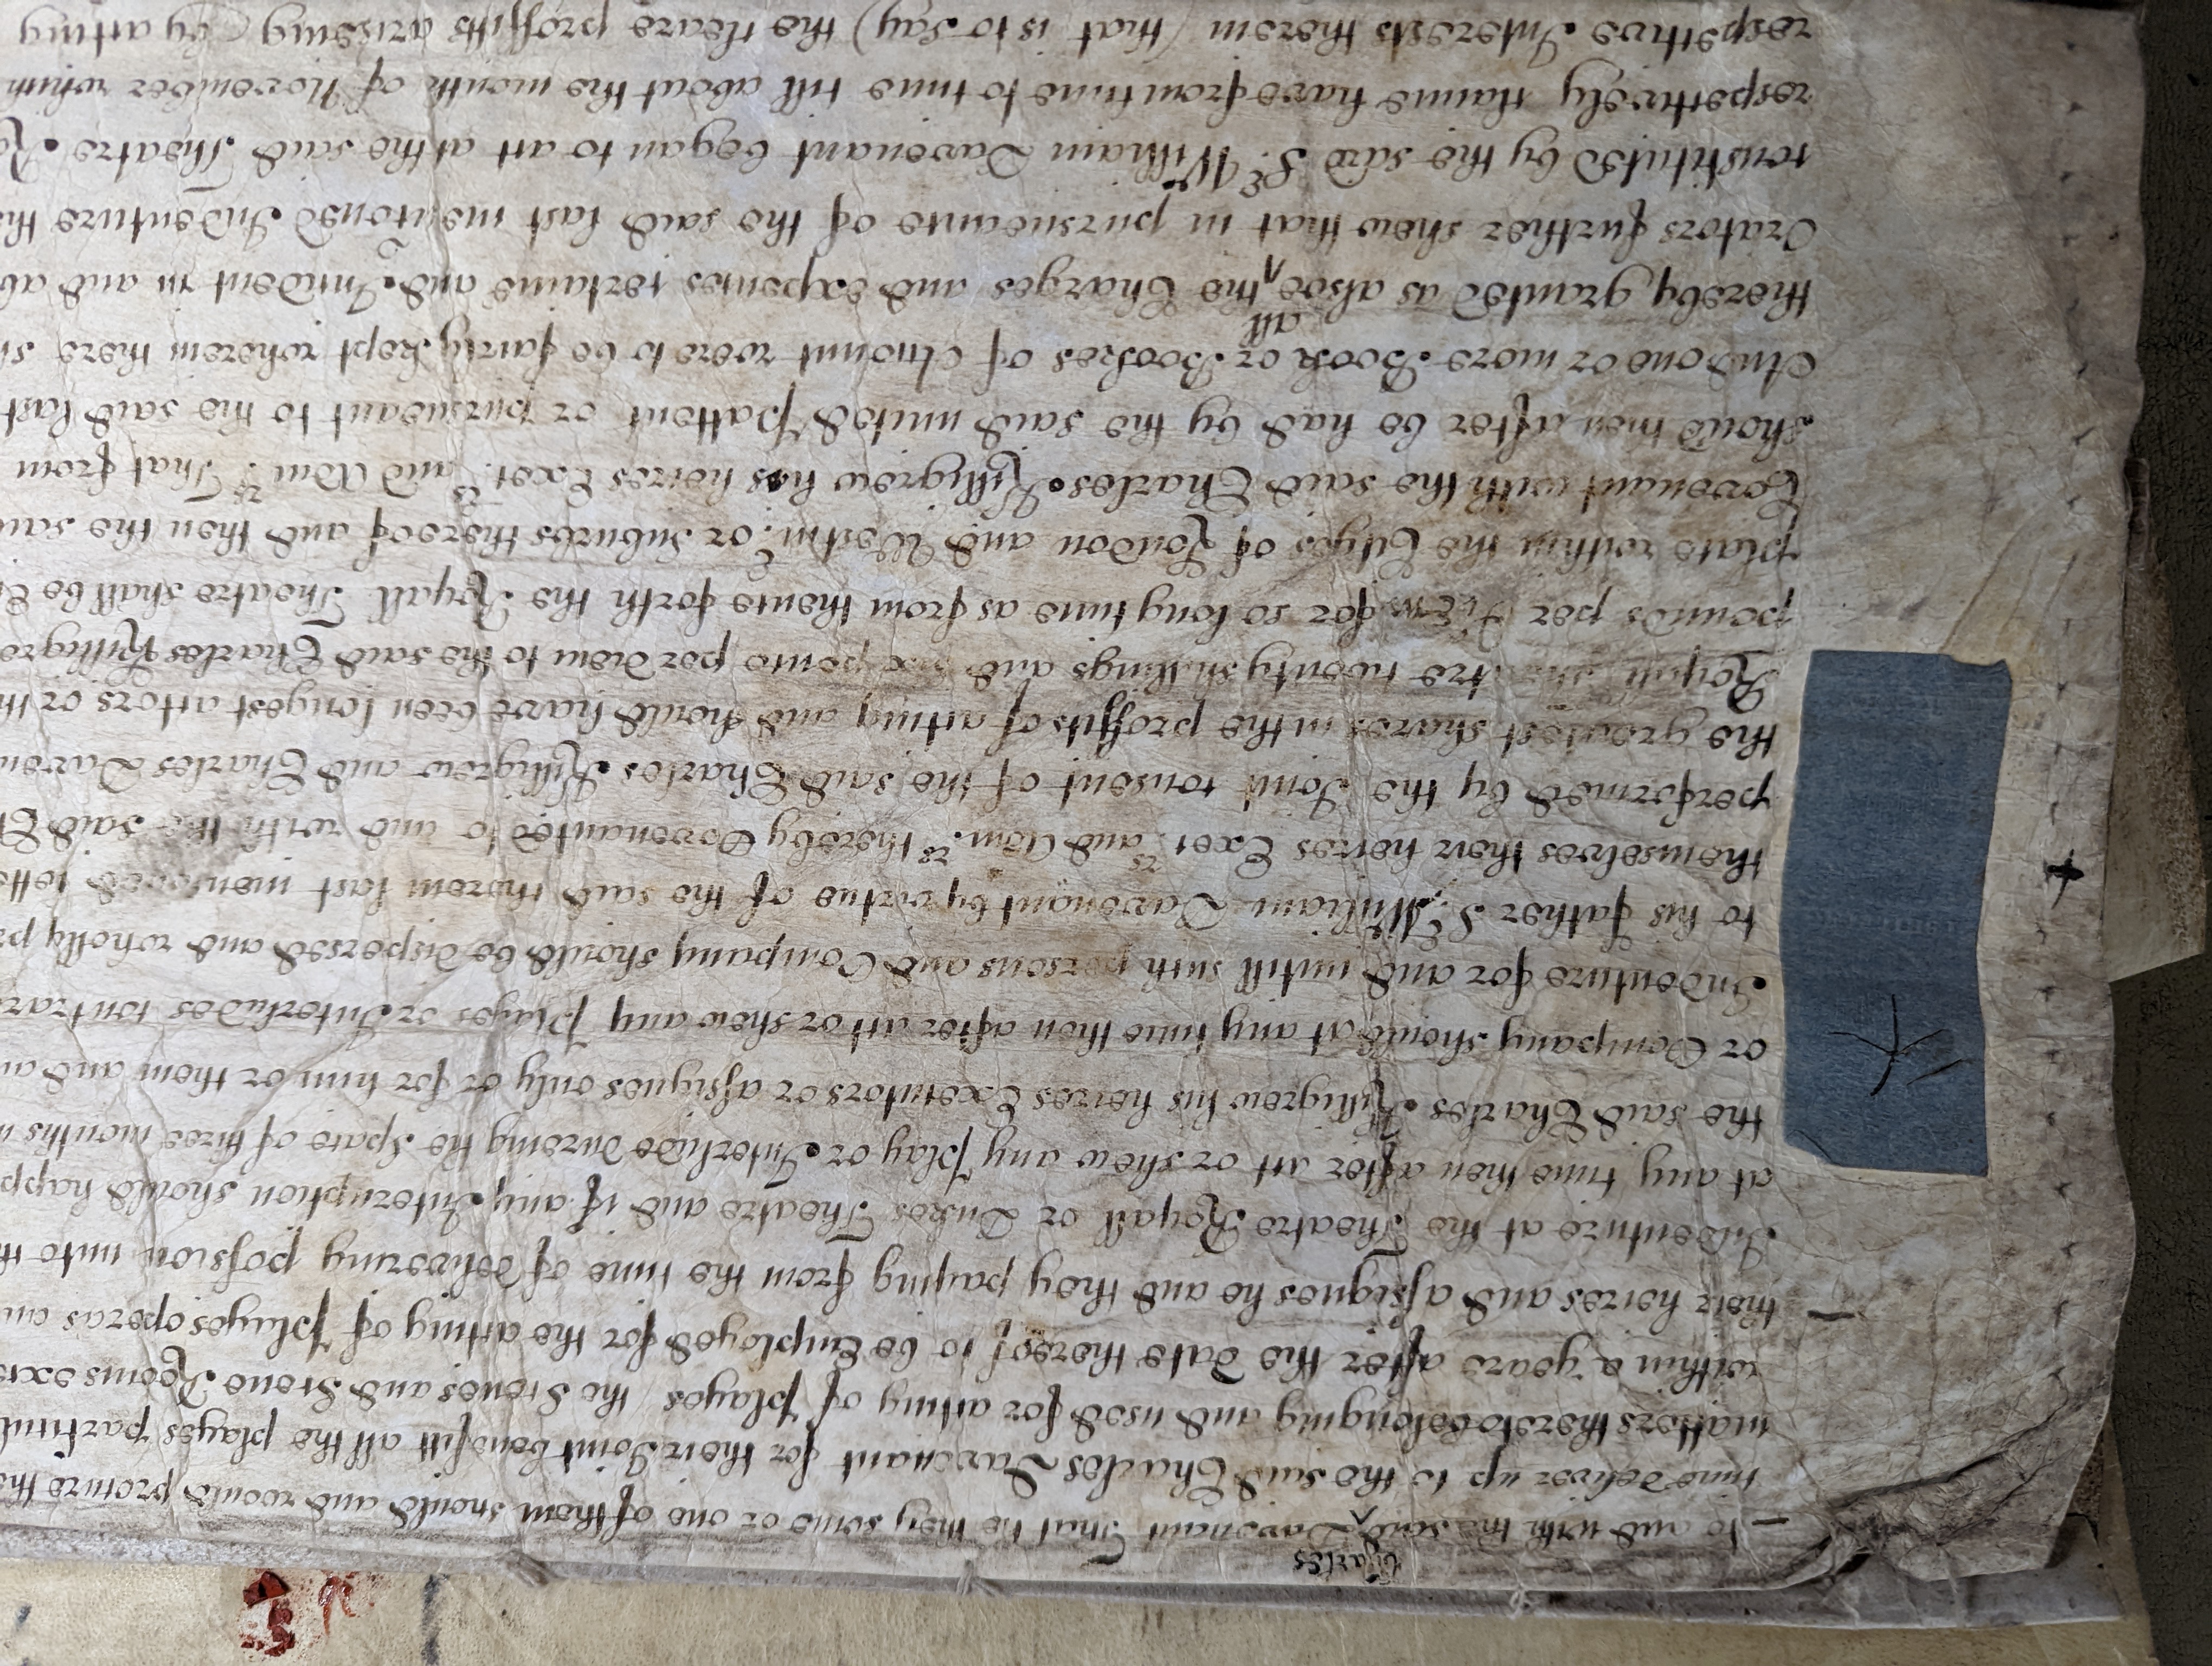 to and with the said ^Charles Davenant That he they some or one of them should and would procure the
time deliver up to the said Charles Davenant for their Joint benefitt all the playes
matters thereto belonging and used for acting of playes the Scenes and Scene Roomes
within a yeare after the date thereof to be Employed for the acting of playes operas
their heires and assignes he and they paying from the time of delivering possion unto
Indenture at the Theatre Royall or Dukes Theatre and if any Interuption should happ
at any time then after act or shew any play or Interlude dureing the Space of three months
the said Charles Killigrew his heires Executors or assignes only or for him or them and
or Company should at any time then after act or shew any playes or Interludes
Indenture for and untill such persons and Company should be dispersed and wholly
to his father Sr. William Davenant by virtue of the said therein last mentioned
themselves their heires Exet.rs and Adm.rs thereby Covenanted to and with the said
performed by the Joint consent of the said Charles Killigrew and Charles Daven
the greatest shares in the proffitts of acting and should have been longest actors or
Royall twenty shillings and pence per diem to the said Charles Killigre
pounds per for so long time as from thence forth the Royall Theatre shall be
place within the Cityes of London and Westmr. or suburbs thereof and then the said
Covenant with the said Charles Killigrew his heires Exet.rs and Adm.rs That from
should then after be had by the said united pattent or pursueant to the said last
And one or more Book or Bookes of Account were to be fairly kept wherein there
thereby granted as alsoe ^all the Charges and expences certaine and Incident in and
Orators further shew that in pursueance of the said last mencioned Indenture the
constituted by the said Sr. William Davenant began to act at the said Theatre
respectively claime have from time to time till about the month of November
respective Interests therein (that is to say) the cleare proffitts ariseing by acting